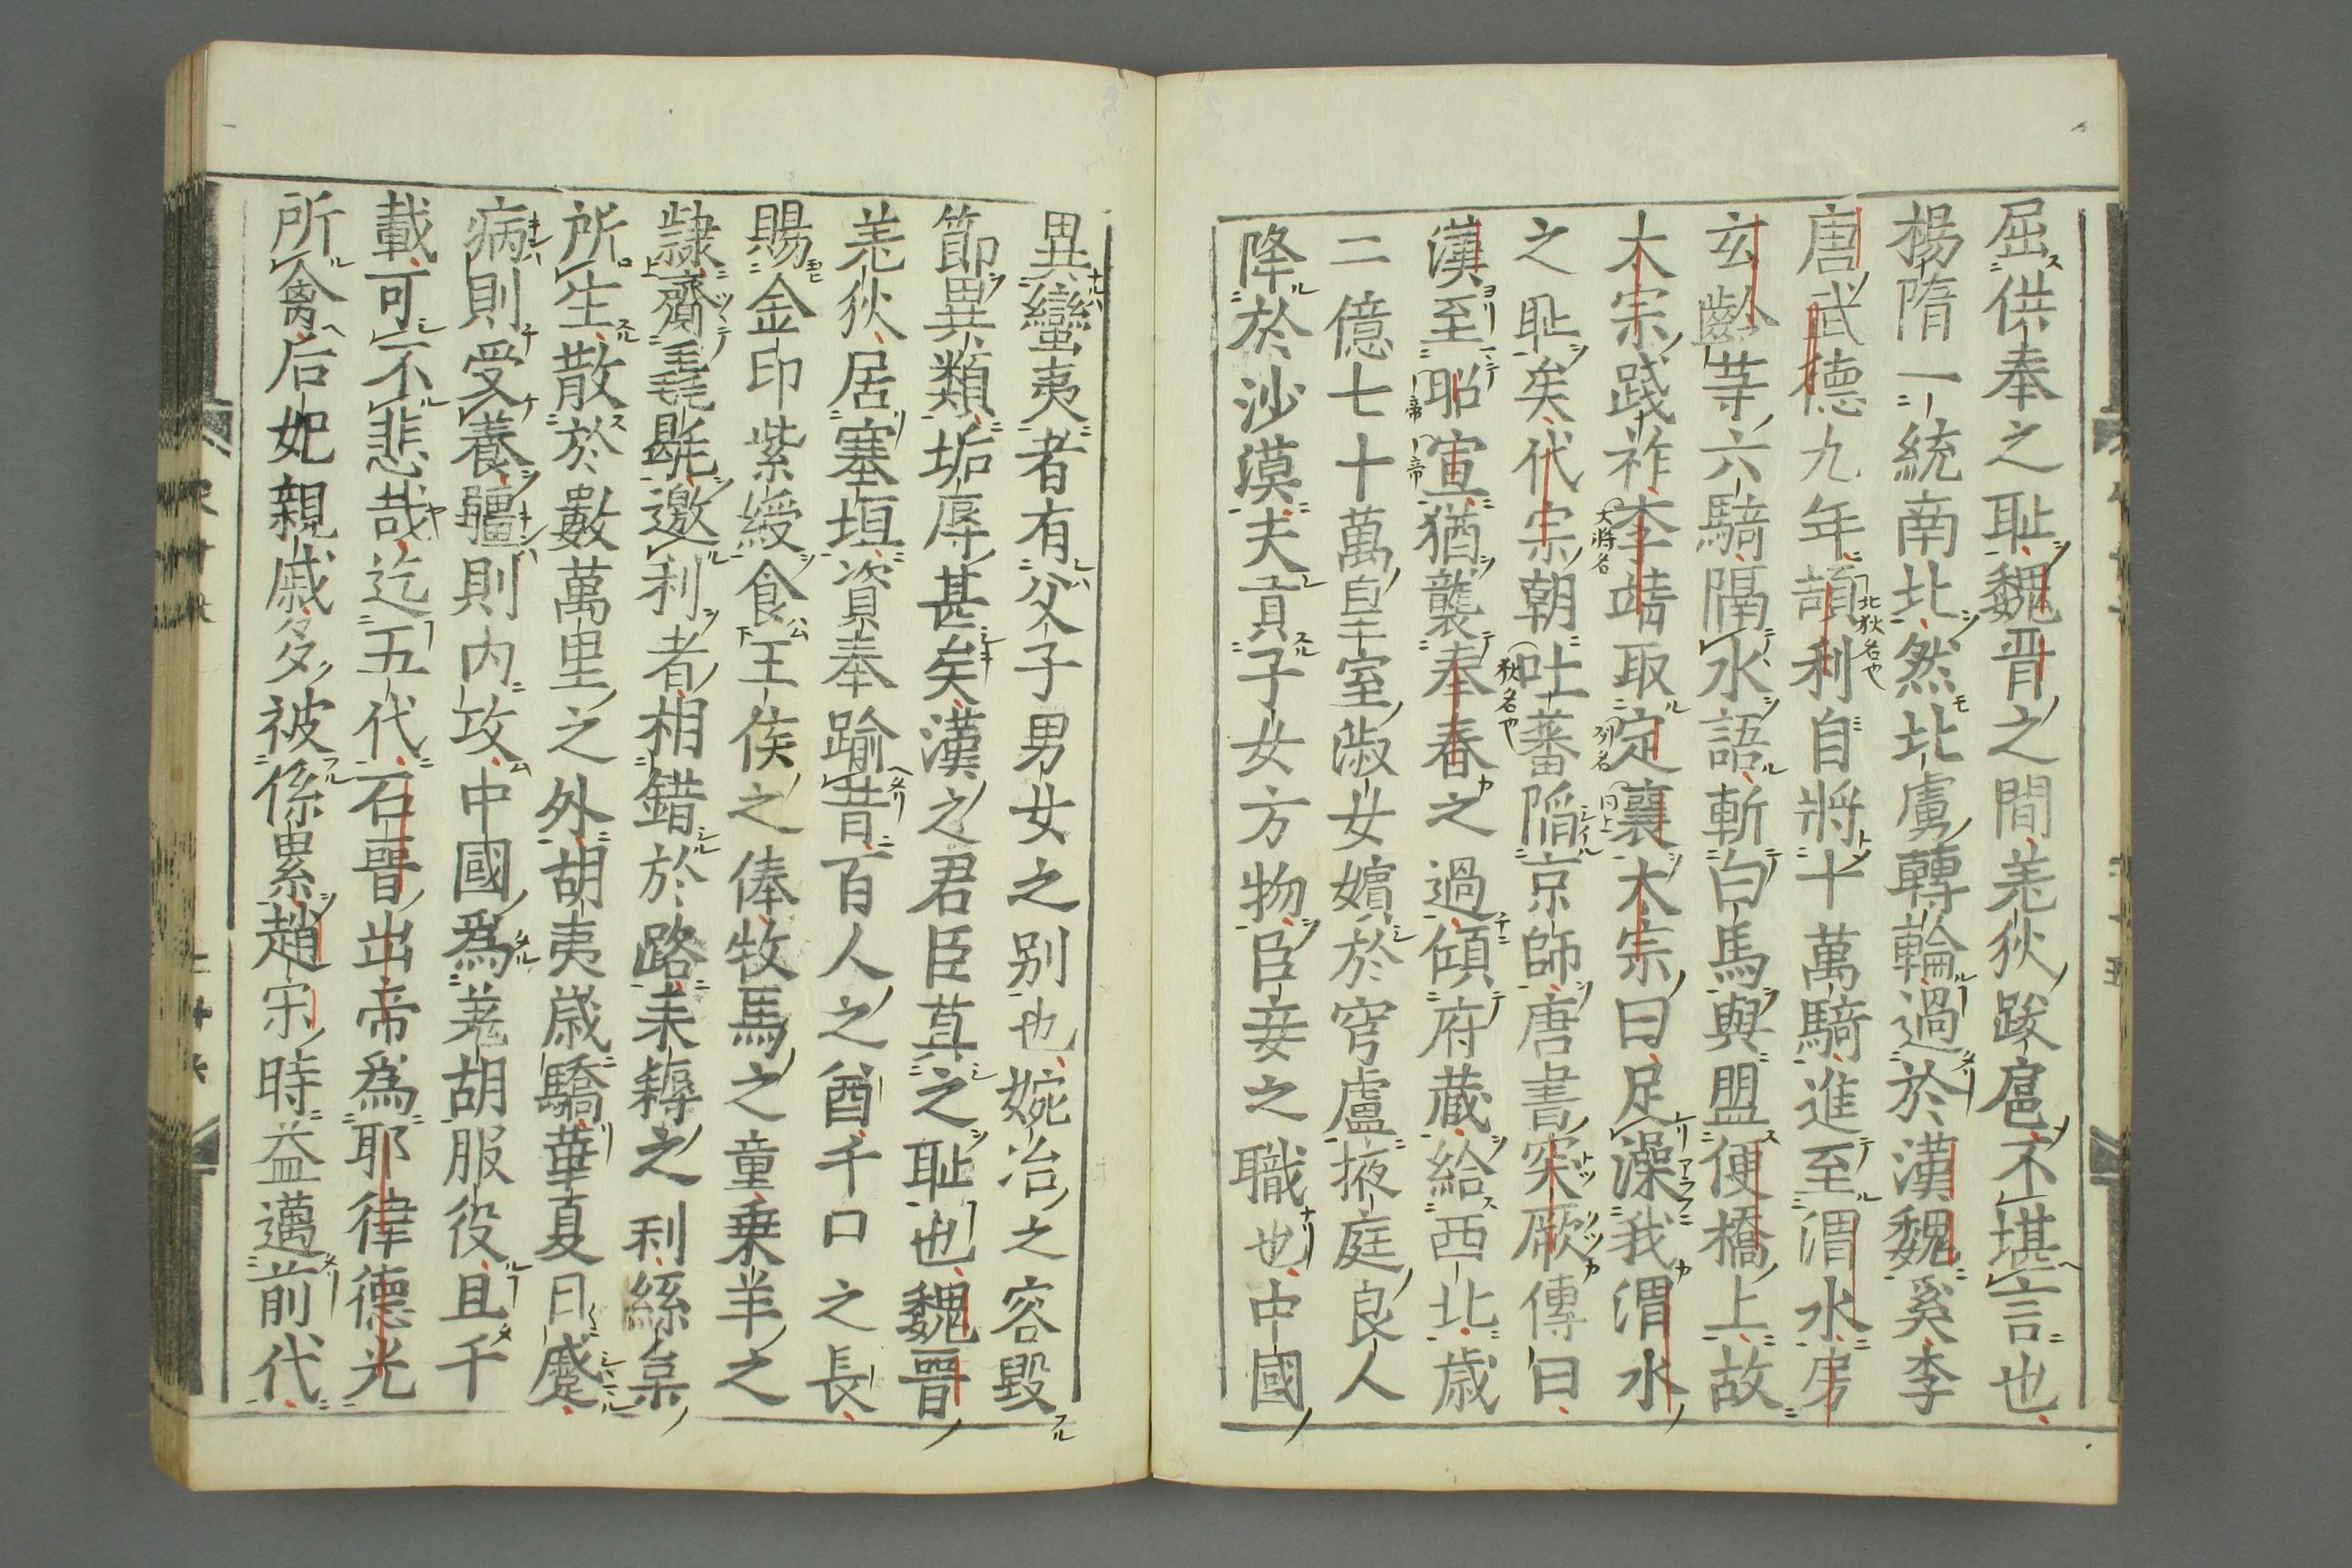 屈供奉之耻魏晋之間羌狄跋扈不堪言也
楊隋一統南北然北虜轉輪過於漢魏奚李
唐武德九年頡利自將十萬騎進至渭水房
玄齡等六騎隔水語斬白馬與盟便橋上故
太宗踐祚李靖取定襄太宗曰足澡我渭水
之耻矣代宗朝吐蕃陷京師唐書突厥傳曰
漢至昭宣猶襲奉春之過傾府藏給西北歳
二億七十萬皇室淑女嬪於穹廬掖庭良人
降於沙漠夫貢子女方物臣妾之職也中國
異蠻夷者有父子男女之別也婉冶之容毀
節異類垢辱甚矣漢之君臣莫之耻也魏晋
羌狄居塞垣資奉踰昔百人之酋千口之長
賜金印紫綬食王侯之俸牧馬之童乗羊之
隷齎毳毼邀利者相錯於路耒耨之利絲枲
所生散於數萬里之外胡夷歳驕華夏日蹙
病則受養彊則內攻中國爲羌胡服役且千
載可不悲哉迄五代石晋出帝爲耶律德光
所禽后妃親戚多被係累趙宋時益邁前代